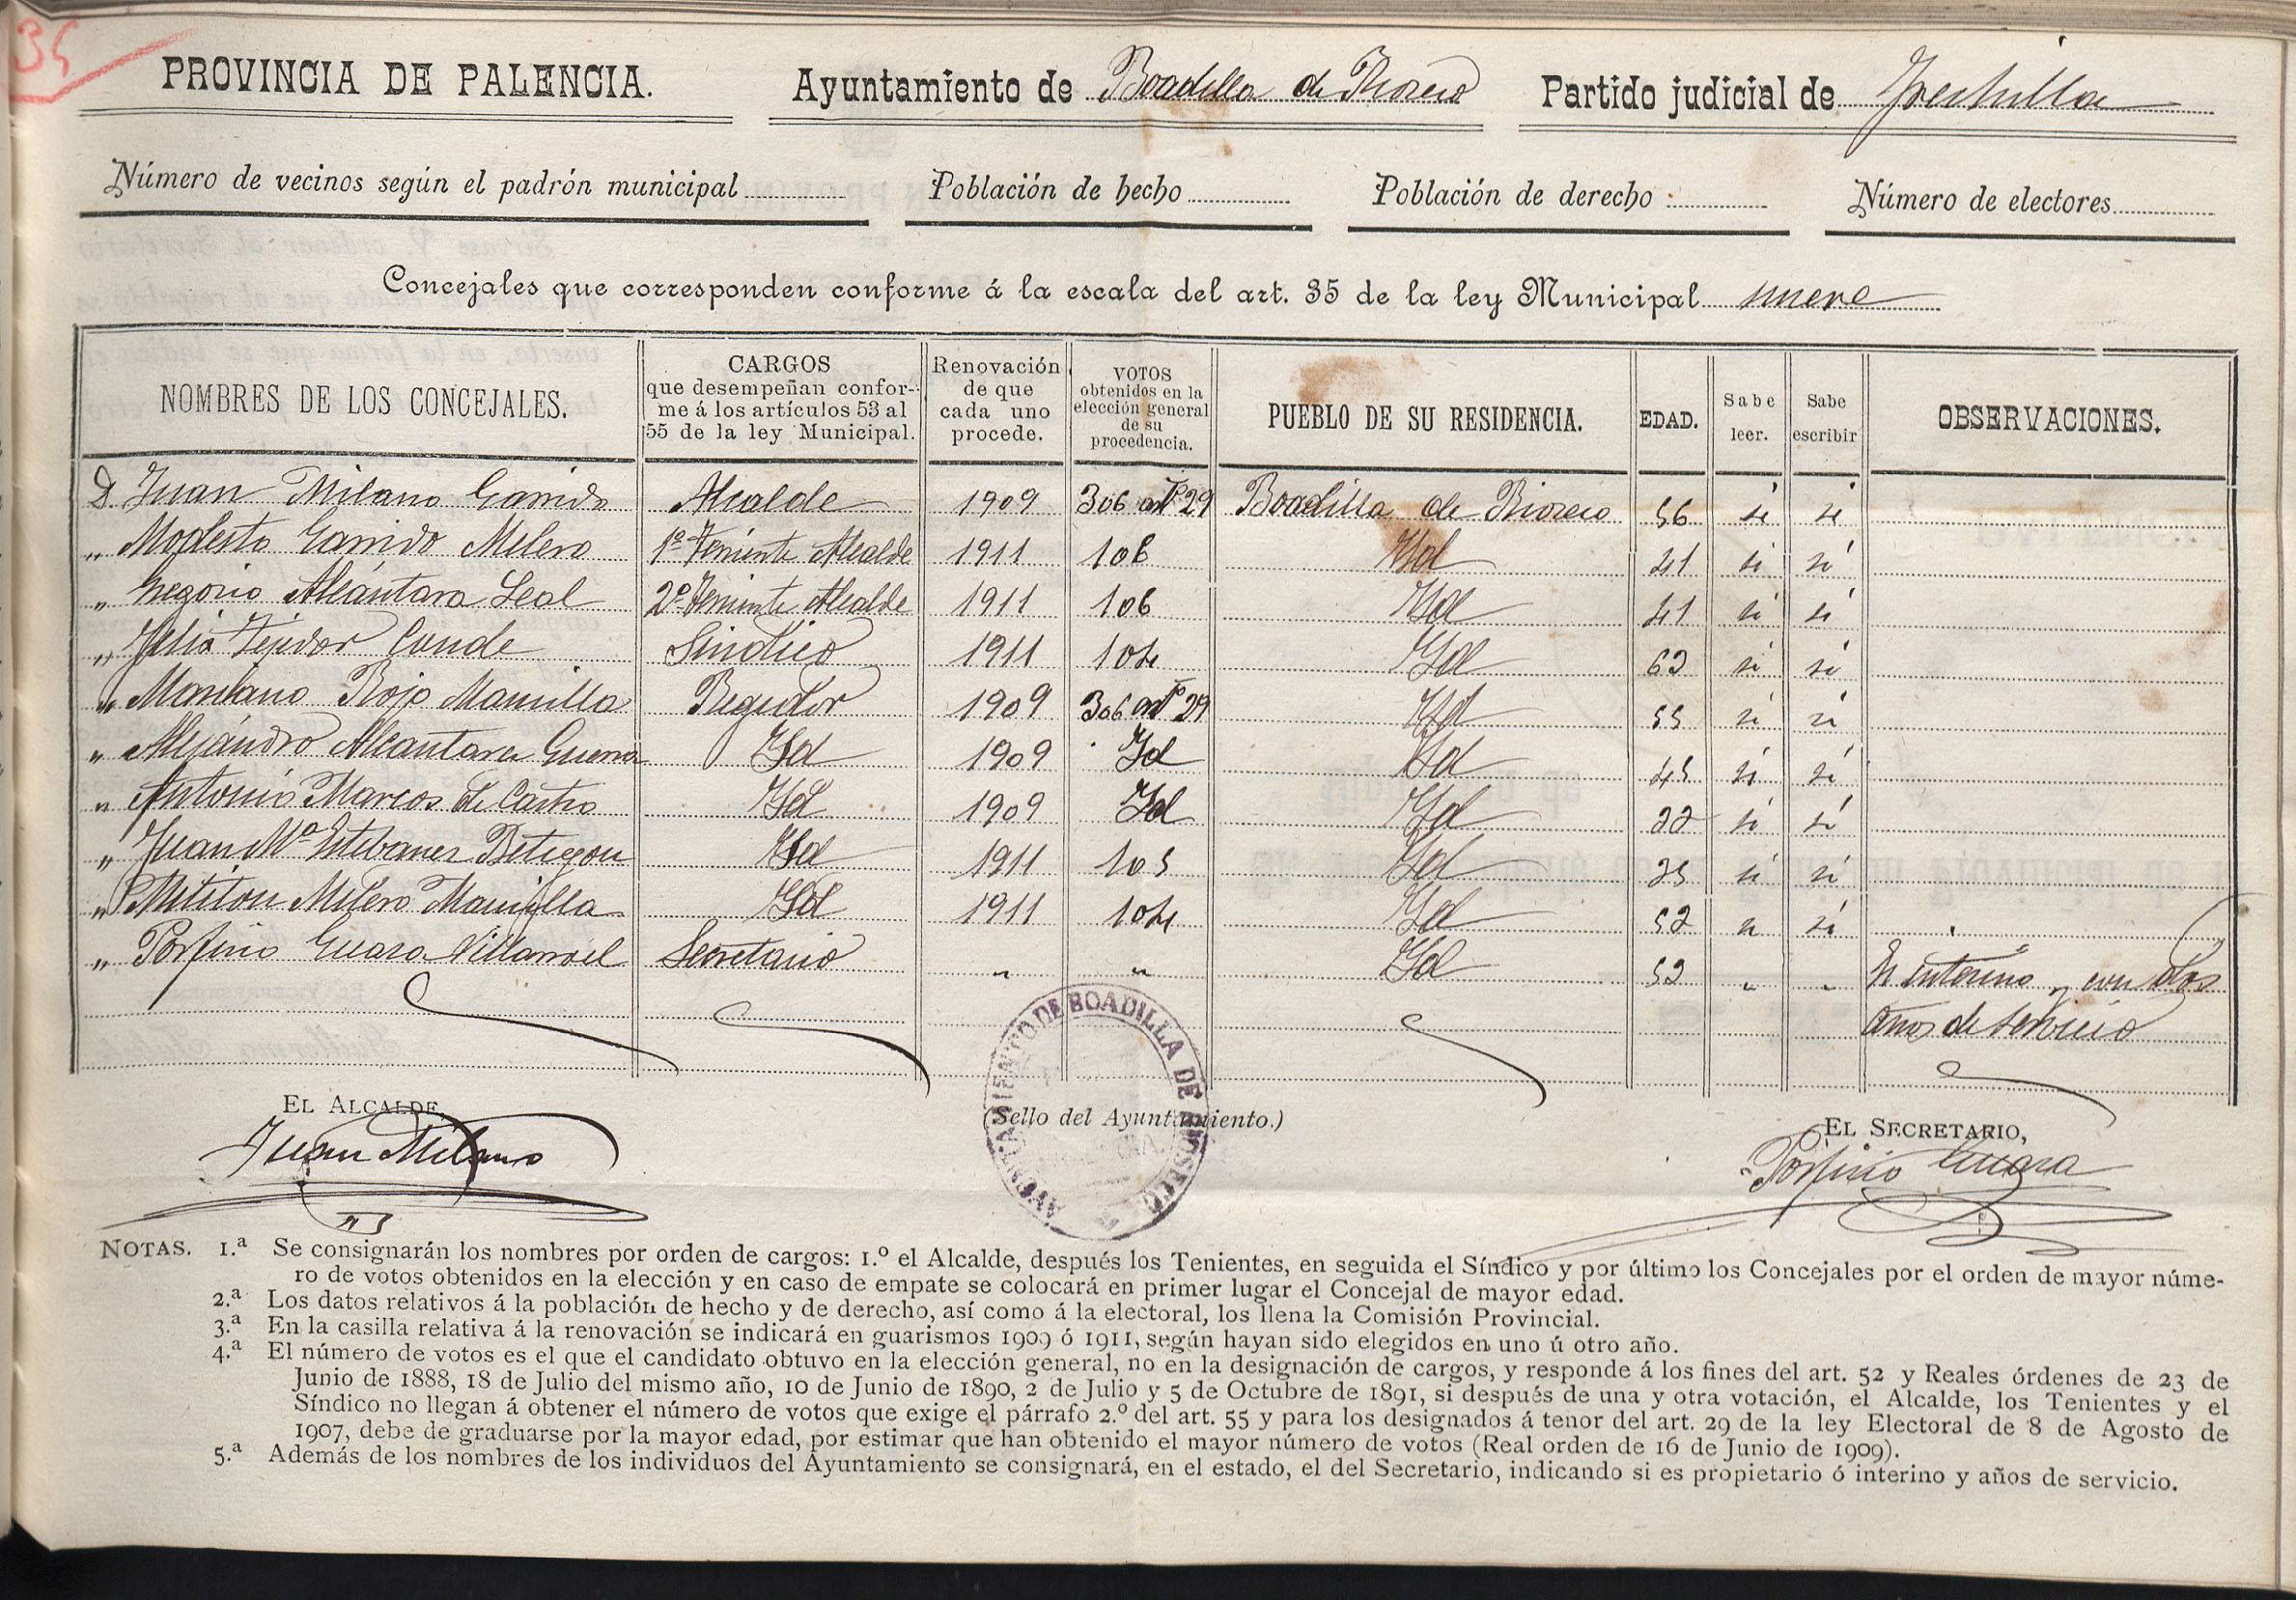 35
PROVINCIA DE PALENCIA. Ayuntamiento de Boadilla de Rioseco Partido judicial de Frechilla
Número de vecinos según el padrón municipal Población de hecho Población de derecho Número de electores
Concejales que corresponden conforme á la escala del art. 35 de la ley Municipal nueve
NOMBRES DE LOS CONCEJALES. CARGOS que desempeñan conforme á los artículos 53 al 55 de la ley Municipal. Renovación de que cada uno procede. VOTOS obtenidos en la elección general de su procedencia. PUEBLO DE SU RESIDENCIA. EDAD. Sabe leer. Sabe escribir OBSERVACIONES.
D. Juan Milano Garrido Alcalde 1909 306 artº 29 Boadilla de Rioseco 56 si si
„ Modesto Garrido Melero 1º Teniente Alcalde 1911 106 Id 41 si si
„ Gregorio Alcántara Leal 2º Teniente Alcalde 1911 106 Id 41 si si
„ Felix Tejedor Conde Sindico 1911 104 Id 62 si si
„ Mariano Rojo Mancilla Regidor 1909 306 artº 29 Id 55 si si
„ Alejandro Alcantara Guerra Id 1909 Id Id 45 si si
„ Antonio Marcos de Castro Id 1909 Id Id si si
„ Juan Mª Estebanez Betegon Id 1911 105 Id si si
„ Melero Mancilla Id 1911 104 Id 52 si si
„ Porfirio Guaza Villarroel Secretario „ „ Id 52 „ „ Es interino y con dos
años de servicio
EL ALCALDE, (Sello del Ayuntamiento.) EL SECRETARIO,
AYUNTAMIENTO DE BOADILLA DE RIOSECO
Juan Milano Porfirio Guaza
NOTAS. 1.ª Se consignarán los nombres por orden de cargos: 1.º el Alcalde, después los Tenientes, en seguida el Síndico y por último los Concejales por el orden de mayor núme-
ro de votos obtenidos en la elección y en caso de empate se colocará en primer lugar el Concejal de mayor edad.
2.ª Los datos relativos á la población de hecho y de derecho, así como á la electoral, los llena la Comisión Provincial.
3.ª En la casilla relativa á la renovación se indicará en guarismos 1909 ó 1911, según hayan sido elegidos en uno ú otro año.
4.ª El número de votos es el que el candidato obtuvo en la elección general, no en la designación de cargos, y responde á los fines del art. 52 y Reales órdenes de 23 de
Junio de 1888, 18 de Julio del mismo año, 10 de Junio de 1890, 2 de Julio y 5 de Octubre de 1891, si después de una y otra votación, el Alcalde, los Tenientes y el
Síndico no llegan á obtener el número de votos que exige el párrafo 2.º del art. 55 y para los designados á tenor del art. 29 de la ley Electoral de 8 de Agosto de
1907, debe de graduarse por la mayor edad, por estimar que han obtenido el mayor número de votos (Real orden de 16 de Junio de 1909).
5.ª Además de los nombres de los individuos del Ayuntamiento se consignará, en el estado, el del Secretario, indicando si es propietario ó interino y años de servicio.